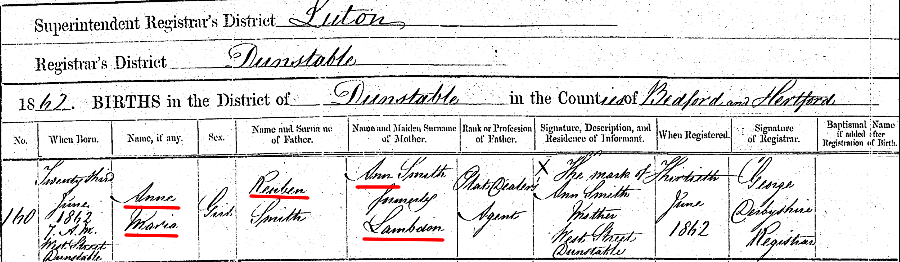 Superintendent Registrar's District Luton
Registrar's District Dunstable
1862. BIRTHS in the District of Dunstable in the Counties of Bedford and Hertford
No. When Born. Name, if any. Sex. Name and Surname of Father. Name and Maiden Surname of Mother. Rank or Profession of Father. Signature, Description, and Residence of Informant. When Registered. Signature of Registrar. Baptismal Name if added after Registration of Birth.
160
Twenty third
June
1862
7. A.M.
West Street
Dunstable
Anne
Maria
Girl
Reuben
Smith
Ann Smith
formerly
Lambdon
Plat Dealers
Agent
X The mark of
Ann Smith
Mother
West Street
Dunstable
Thirtieth
June
1862
George
Derbyshire
Registrar